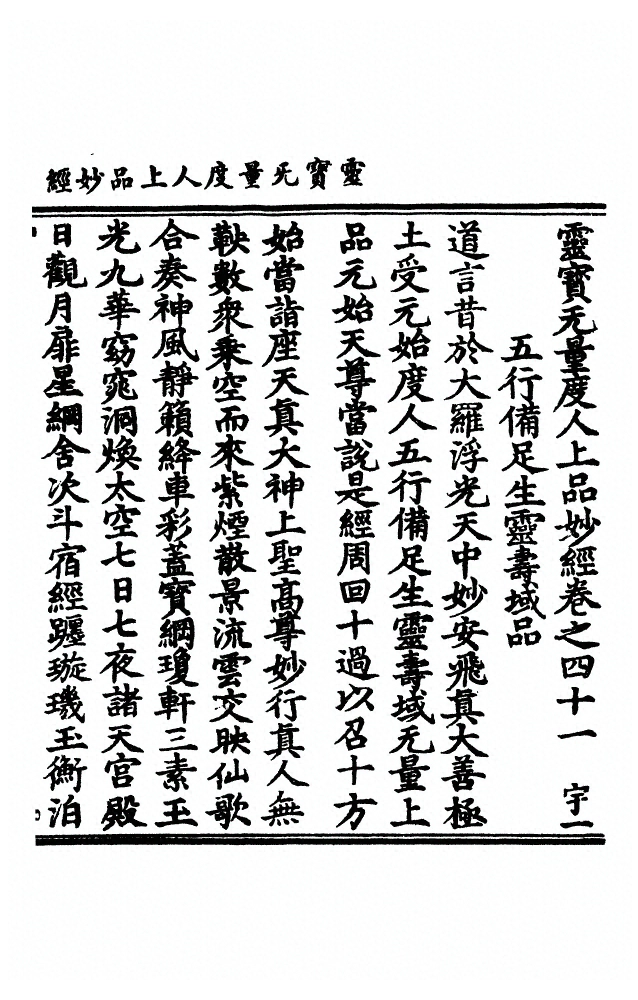 靈寶无量度人上品妙經
靈寶无量度人上品妙經卷之四十一 宇一
五行備足生靈壽域品
道言昔於大羅浮光天中妙安飛真大善極
土受元始度人五行備足生靈壽域无量上
品元始天尊當說是經周回十過以召十方
始當詣座天真大神上聖高尊妙行真人無
鞅數衆乘空而來紫煙散景流雲交映仙歌
合奏神風靜籟絳車彩蓋寶綱瓊軒三素玉
光九華窈窕洞煥太空七日七夜諸天宫殿
日觀月扉星綱舍次斗宿經躔璇璣玉衡泊